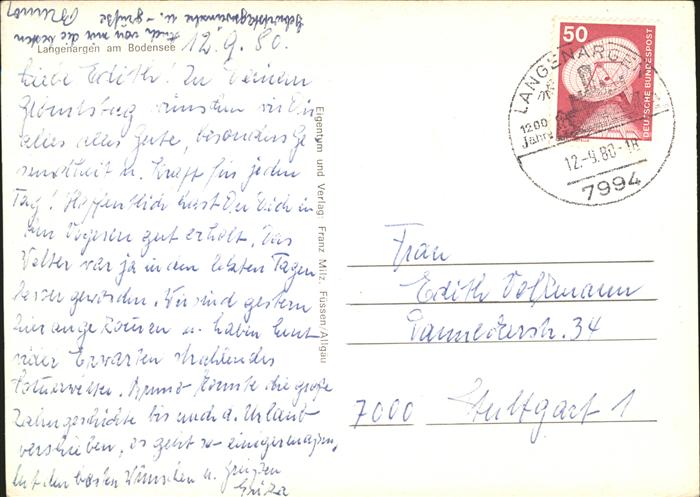 Geburtstagswünsche u. -grüße
Auch von mir die besten
Bruno
Langenargen am Bodensee
12.9.80.
Liebe Edith! Zu Deinem
Geburtstag wünschen wir Dir
alles alles Gute, besonders Ge
sundheit u. Kraft für jeden
Tag! Hoffentlich hast Du Dich in
den Vogesen gut erholt. Das
Wetter war ja in den letzten Tagen
besser geworden. Wir sind gestern
hier angekommen u. haben heut
wider Erwarten strahlendes
Bruno konnte die große
Zahngeschichte bis nach d. Urlaub
verschieben, es geht so einigermaßen.
Mit den besten Wünschen u. Grüßen
Eigentum und Verlag: Franz Milz, Füssen/Allgäu
50
DEUTSCHE BUNDESPOST
LANGENARGEN
1200
Jahre
12.-9.80-18
7994
Frau
Edith Volkmann
Danneckerstr. 34
7000 Stuttgart 1